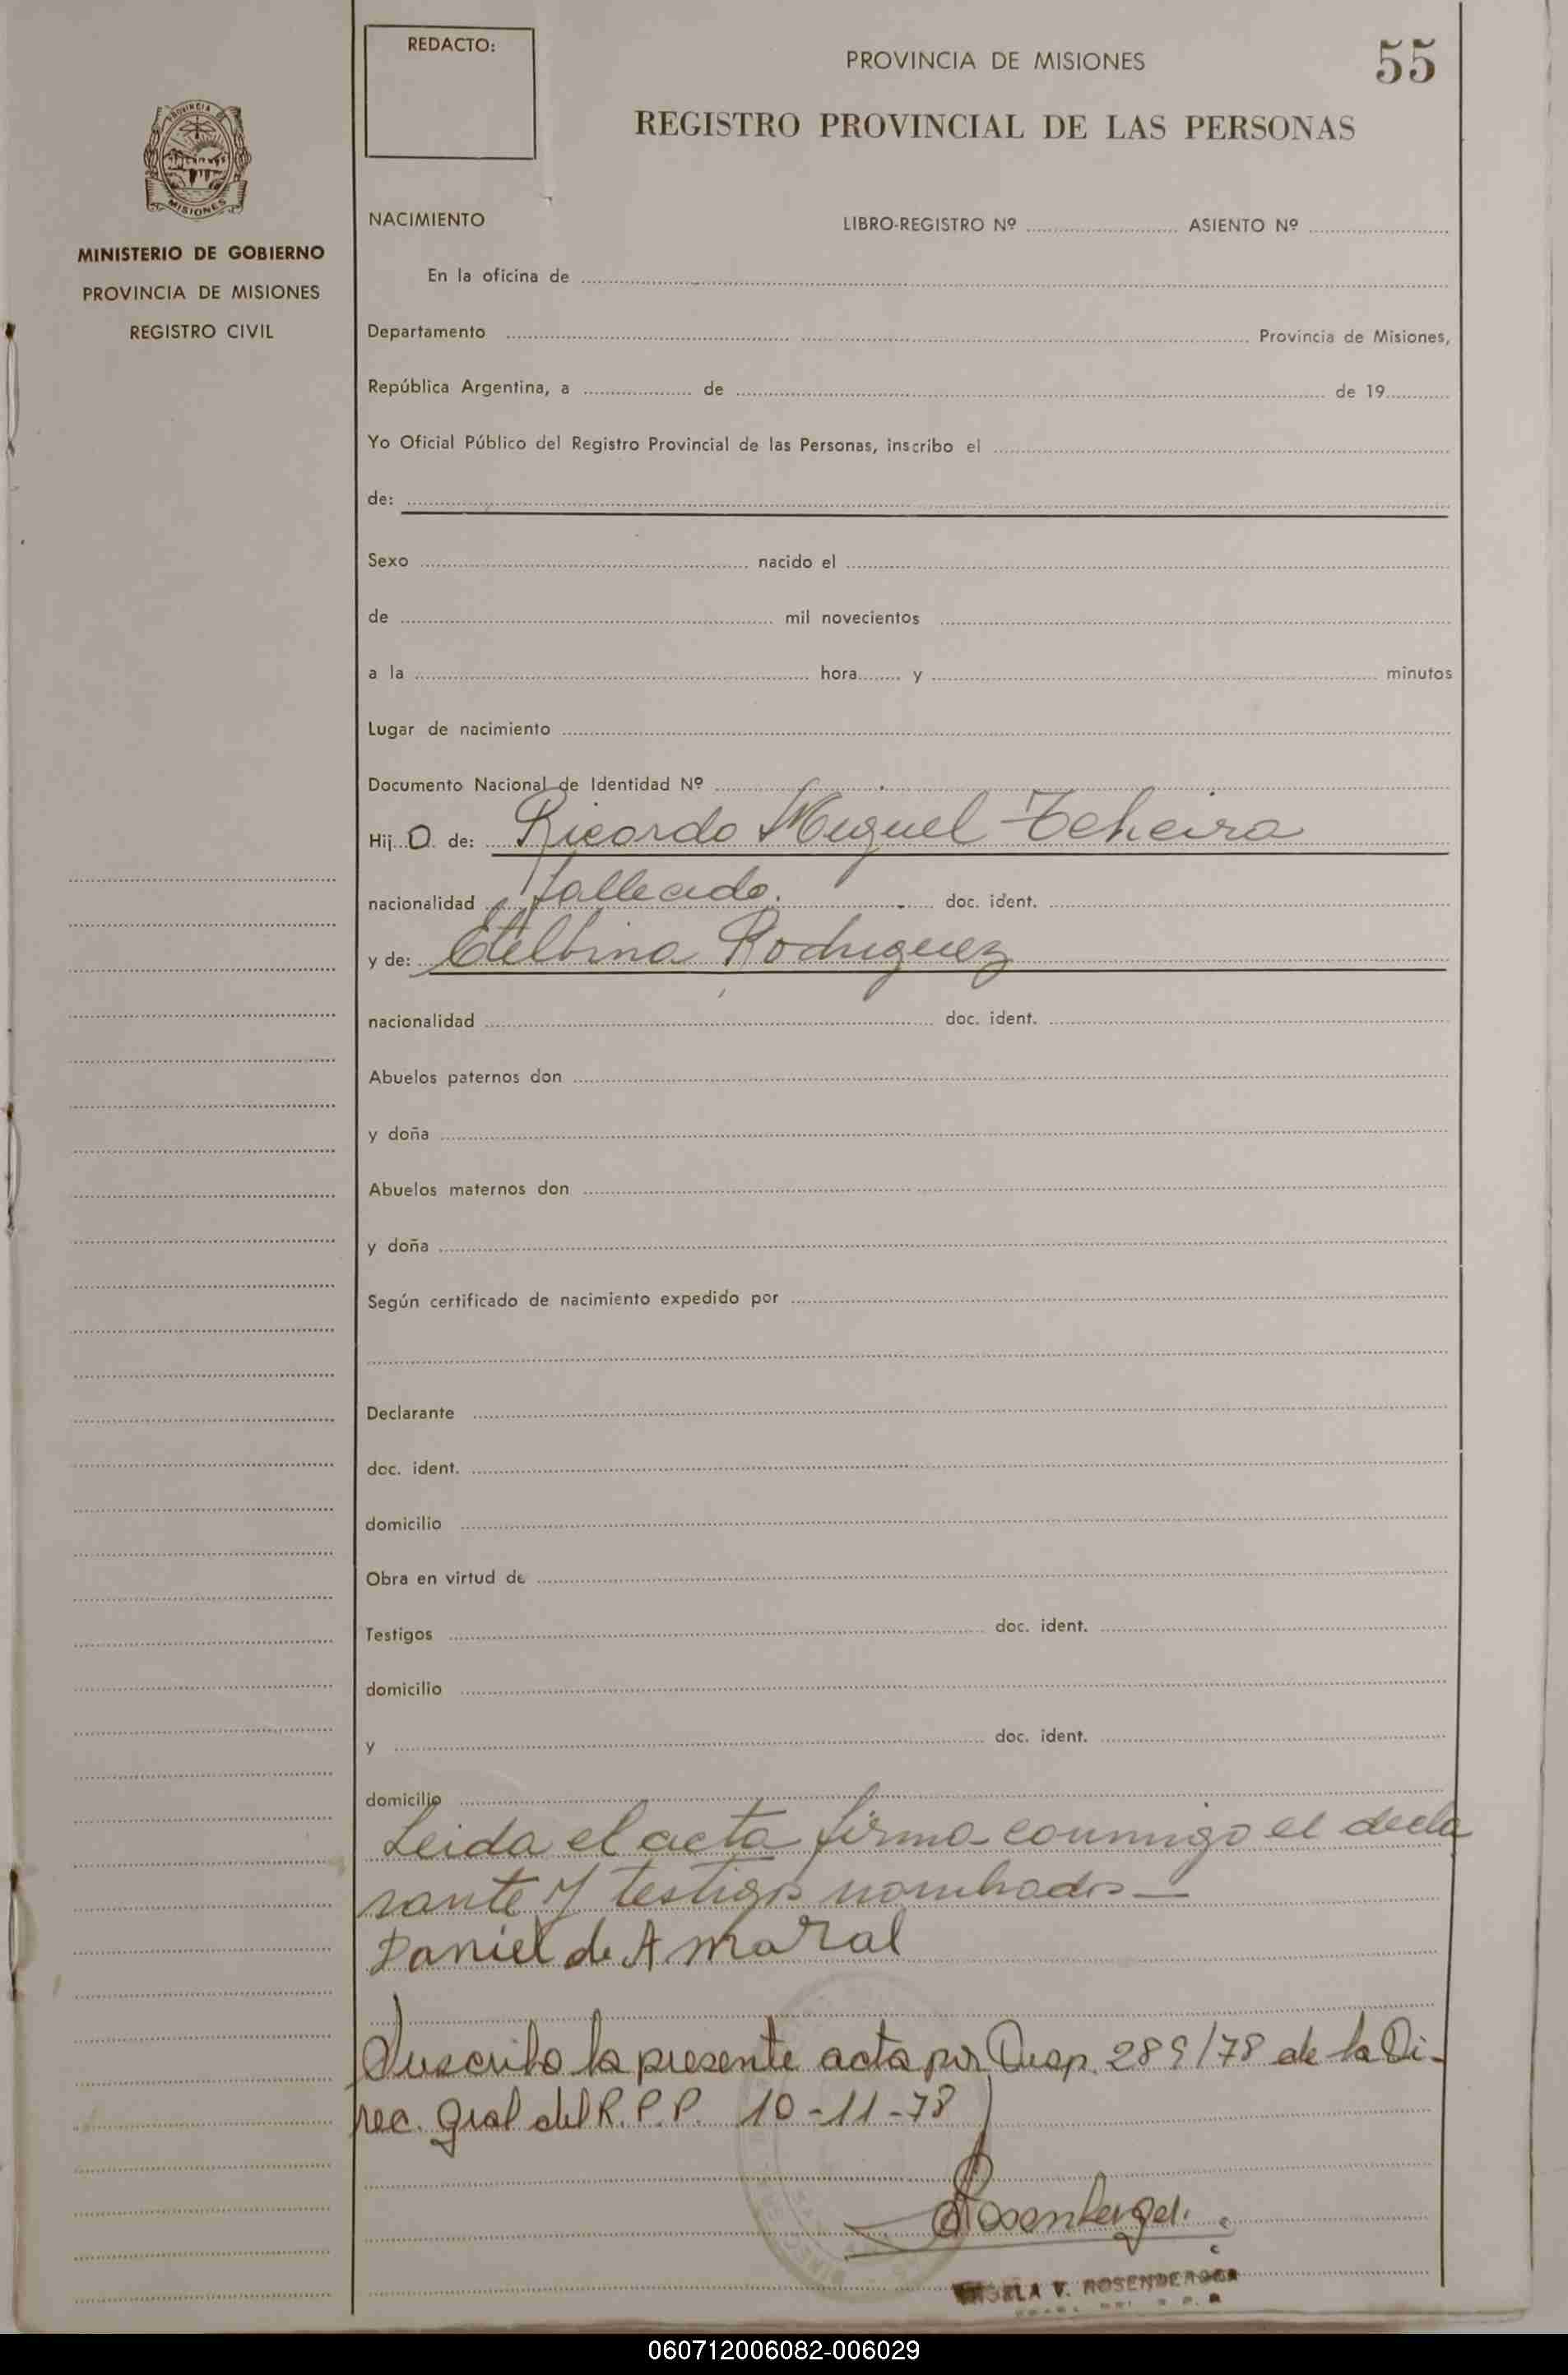 REDACTO:
PROVINCIA DE MISIONES
55
REGISTRO PROVINCIAL DE LAS PERSONAS
PROVINCIA DE
MISIONES
MINISTERIO DE GOBIERNO
PROVINCIA DE MISIONES
REGISTRO CIVIL
NACIMIENTO LIBRO-REGISTRO Nº ASIENTO Nº
En la oficina de
Departamento Provincia de Misiones,
República Argentina, a de de 19
Yo Oficial Público del Registro Provincial de las Personas, inscribo el
de:
Sexo nacido el
de mil novecientos
a la hora y minutos
Lugar de nacimiento
Documento Nacional de Identidad Nº
Hij O de: Ricardo Miguel Tcheira
nacionalidad fallecido. doc. ident.
y de: Etelbina Rodriguez
nacionalidad doc. ident.
Abuelos paternos don
y doña
Abuelos maternos don
y doña
Según certificado de nacimiento expedido por
Declarante
doc. ident.
domicilio
Obra en virtud de
Testigos doc. ident.
domicilio
y doc. ident.
domicilio
Leida el acta firma conmigo el decla
rante y testigos nombrados —
Daniel de Amaral
Suscribo la presente acta por Disp. 289/78 de la Di-
rec. Gral del R.P.P. 10-11-78
Rosenberger.
V. ROSENBERGER
060712006082-006029